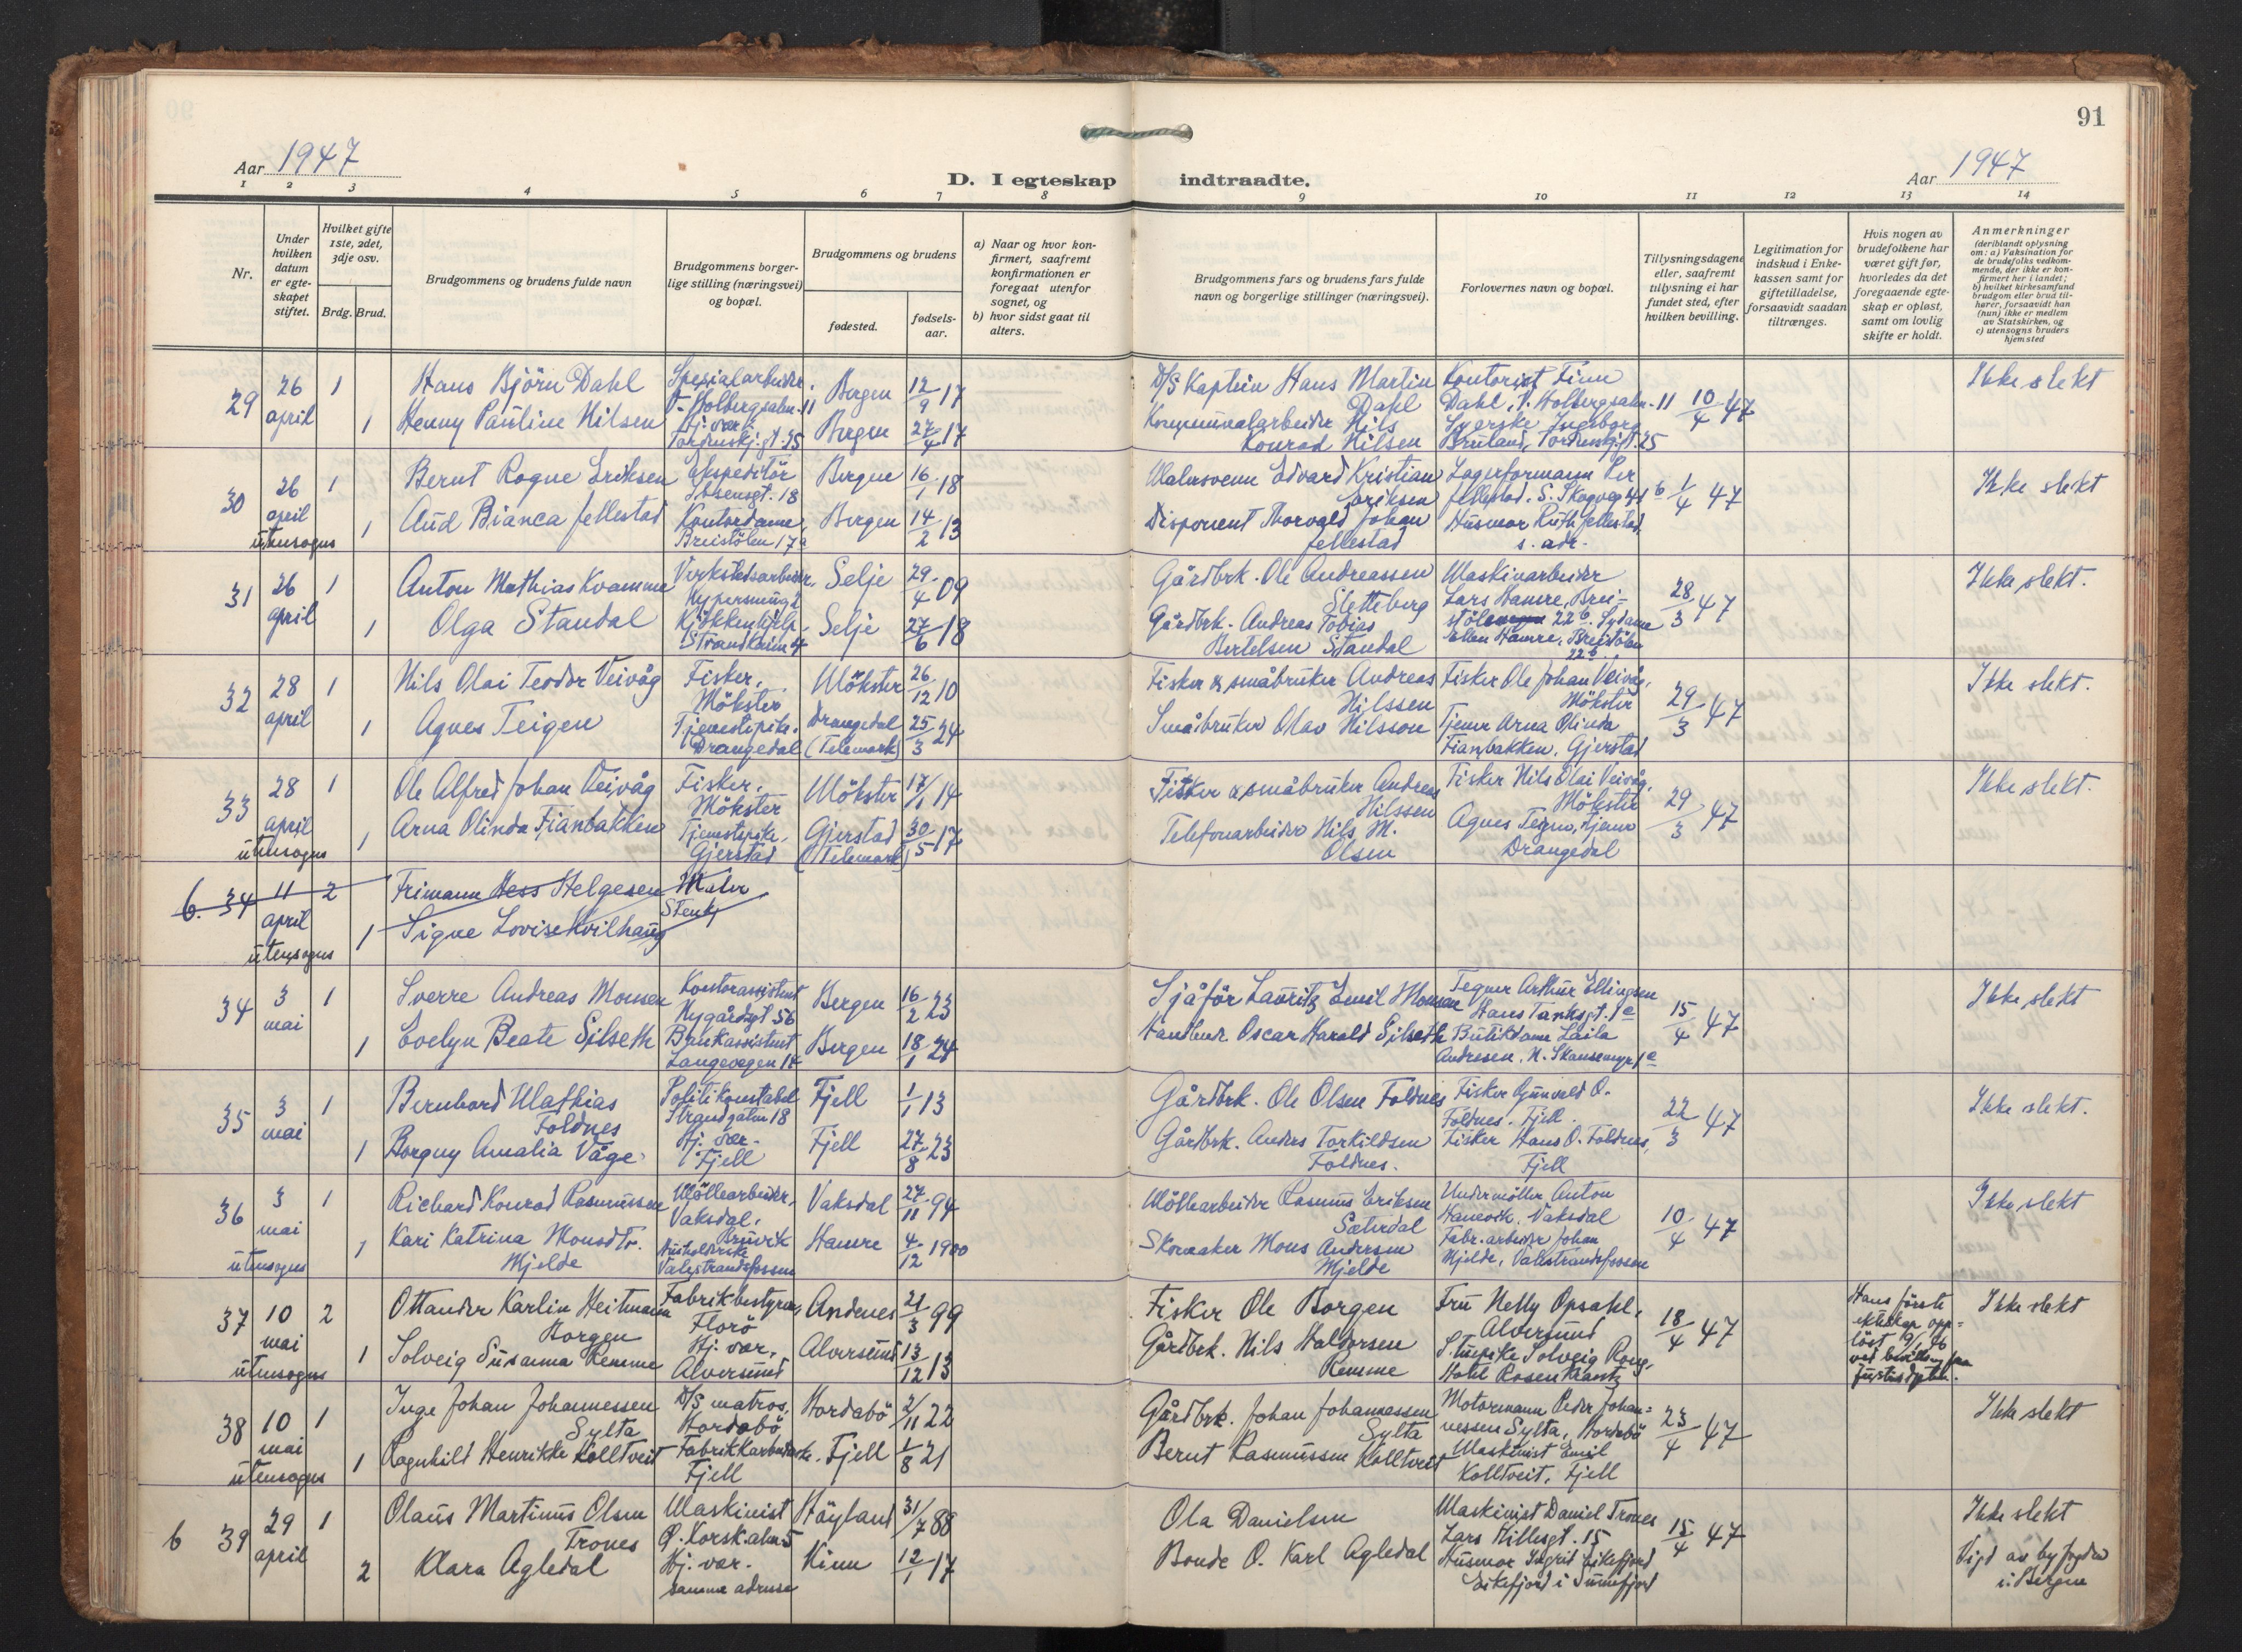 91
Aar 1947
Aar 1947
D. I egteskap indtraadte.
1 2 3 4 5 6 7 8 9 10 11 12 13 14
Nr.
Under hvilken datum er egteskapet stiftet.
Hvilket gifte 1ste, 2det, 3dje osv.
Brdg. Brud.
Brudgommens og brudens fulde navn
Brudgommens borgerlige stilling (næringsvei) og bopæl.
Brudgommens og brudens
fødested.
fødselsaar.
a) Naar og hvor konfirmert, saafremt konfirmationen er foregaat utenfor sognet, og
b) hvor sidst gaat til alters.
Brudgommens fars og brudens fars fulde navn og borgerlige stillinger (næringsvei).
Forlovernes navn og bopæl.
Tillysningsdagene eller, saafremt tillysning ei har fundet sted, efter hvilken bevilling.
Legitimation for indskud i Enkekassen samt for giftetilladelse, forsaavidt saadan tiltrænges.
Hvis nogen av brudefolkene har været gift før, hvorledes da det foregaaende egteskap er opløst, samt om lovlig skifte er holdt.
Anmerkninger
(deriblandt oplysning om: a) Vaksination for de brudefolks vedkommende, der ikke er konfirmert her i landet; b) hvilket kirkesamfund brudgom eller brud tilhører, forsaavidt han (hun) ikke er medlem av Statskirken, og c) utensogns bruders hjemsted
29 26 april 1 Hans Björn Dahl Spesialarbeider. V. Holbergsalm. 11 Bergen 12/9 17 D/S Kaptein Hans Martin Dahl Kontorist Finn Dahl, V. Holbergsalm. 11 10/4 47 Ikke slekt
1 Henny Pauline Nilsen Hj. vær. Tordenskj.gt. 25 Bergen 27/4 17 Kommunalarbeider Nils Konrad Nilsen Syerske Ingeborg Bruland, Tordenskj.gt. 25
30 26 april utensogns 1 Bernt Rogne Eriksen Ekspeditör Ibsensgt. 18 Bergen 16/1 18 Malersvenn Edvard Kristian Eriksen Lagerformann Per Jellestad. S. Skogveg 41 b 1/4 47 Ikke slekt
1 Aud Bianca Jellestad Kontordame, Breistölen 17a Bergen 14/2 13 Disponent Thorvald Johan Jellestad Husmor Ruth Jellestad, s. adr.
31 26 april 1 Anton Mathias Kvamme Verkstedsarbeider, Nypersmug 2 Selje 29/4 09 Gårdbrk. Ole Andreassen Sletteberg Maskinarbeider Lars Hamre, Breistölen 22 b. 28/3 47 Ikke slekt.
1 Olga Standal Kjökkenhjelp Strandkaien 4 Selje 27/6 18 Gårdbrk. Andreas Tobias Bertelsen Standal Sydame Ellen Hamre, Breistölen 22 b.
32 28 april 1 Nils Olai Teodor Veivåg Fisker, Mökster Mökster 26/12 10 Fisker & småbruker Andreas Nilssen Fisker Ole Johan Veivåg, Mökster 29/3 47 Ikke slekt.
1 Agnes Teigen Tjenestepike. Drangedal Drangedal (Telemark) 25/3 24 Småbruker Olav Nilsson Tjener Arna Olinda Fianbakken, Gjerstad
33 28 april utensogns 1 Ole Alfred Johan Veivåg Fisker, Mökster Mökster 17/1 14 Fisker & småbruker Andreas Nilssen Fisker Nils Olai Veivåg, Mökster 29/3 47 Ikke slekt.
1 Arna Olinda Fianbakken Tjenestepike, Gjerstad Gjerstad (Telemark) 30/5 17 Telefonarbeider Nils M. Olsen Agnes Teigen, tjener Drangedal
6. 34 11 april utensogns 2 Frimann Hess Helgesen Maler
1 Signe Lovise Kvilhaug Stenkj
34 3 mai 1 Sverre Andreas Monsen Kontorassistent Nygårdsgt 56 Bergen 16/2 23 Sjåför Lauritz Emil Monsen Tegner Arthur Ellingsen Hans Tanksgt. 1e 15/4 47 Ikke slekt
1 Evelyn Beate Gilseth Bankassistent Langevegen 14 Bergen 18/1 24 Handlende Oscar Harald Gilseth Butikdame Laila Andresen. N. Skansemyr 1e
35 3 mai 1 Bernhard Mathias Foldnes Politikonstabel Strandgaten 18 Fjell 1/1 13 Gårdbrk. Ole Olsen Foldnes Fisker Gunvald O. Foldnes. Fjell. 22/3 47 Ikke slekt.
1 Borgny Amalia Våge Hj. vær. Fjell Fjell 27/8 23 Gårdbrk. Anders Torkildsen Foldnes. Fisker Hans O. Foldnes, Fjell
36 3 mai utensogns 1 Richard Konrad Rasmussen Möllearbeider, Vaksdal, Bruvik Vaksdal 27/11 94 Möllearbeider Rasmus Eriksen Sæterdal Undermöller Anton Hanevik. Vaksdal 10/4 47 Ikke slekt
1 Kari Katrina Monsdtr. Mjelde Husholderske Valestrandsfossen Hamre 4/12 1900 Skomaker Mons Andersen Mjelde Fabr. arbeider Johan Mjelde, Valestrandsfossen
37 10 mai utensogns 2 Ottander Karlin Heitmann Borgen Fabrikbestyrer, Florö Andenes 21/3 99 Fisker Ole Borgen Fru Nelly Opsahl, Alversund 18/4 47 Hans förste ekteskap opplöst 9/1 46 ved bevilling fra Justisdptet. Ikke slekt
1 Solveig Susanna Remme Hj. vær, Alversund Alversund 13/12 13 Gårdbrk. Nils Haldorsen Remme Stuepike Solveig Rong, Hotel Rosenkrantz
38 10 mai utensogns 1 Inge Johan Johannessen Sylta D/S matros, Hordabö Hordabö 2/11 22 Gårdbrk. Johan Johannessen Sylta Motormann Peder Johannessen Sylta, Hordabö 23/4 47 Ikke slekt
1 Ragnhild Henrikke Kolltveit Fabrikkarbeiderske. Fjell Fjell 1/8 21 Bernt Rasmussen Kolltveit Maskinist Emil Kolltveit, Fjell
6 39 29 april 1 Olaus Martinus Olsen Trones Maskinist Ø. Korsk.alm. 5 Höyland 31/7 88 Ola Danielsen Maskinist Daniel Trones Lars Hillesgt. 15 15/4 47 Ikke slekt
2 Klara Agledal Hj. vær. samme adresse Kinn 12/1 17 Bonde O. Karl Agledal Husmor Ingrid Eikefjord Eikefjord i Sunnfjord Vigd av byfogden i Bergen